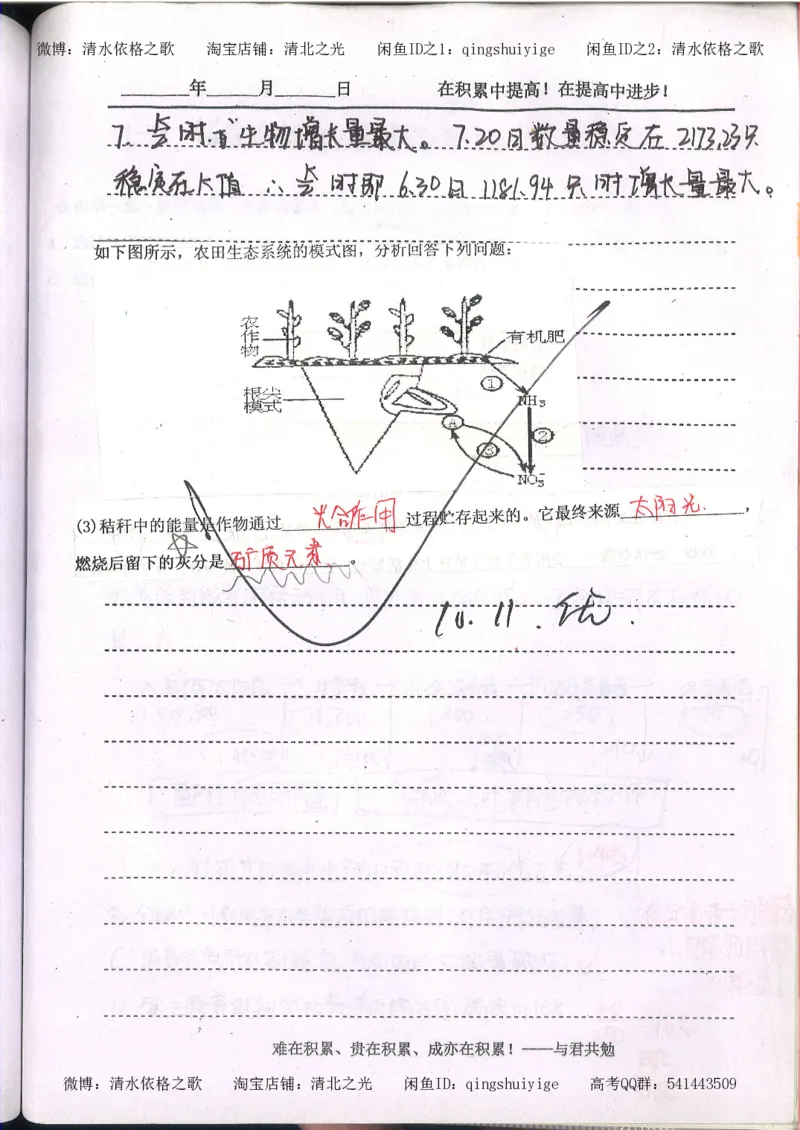 微博：清水依格之歌 淘宝店铺：清北之光 闲鱼ID之1：qingshuiyige 闲鱼ID之2：清水依格之歌
______年______月______日 在积累中提高！在提高中进步！
7. K/2时,有生物增长量最大。7.20日数量稳定在2173.23只
稳定在K值 ∴ K/2时即6.30日1181.94只时增长量最大。
如下图所示，农田生态系统的模式图，分析回答下列问题：
农作物
有机肥
根尖模式
①
NH₃
A
②
③
NO₃⁻
(3)秸秆中的能量是作物通过 光合作用 过程贮存起来的。它最终来源 太阳光 ，
燃烧后留下的灰分是 矿质元素 。
10.11. 优.
难在积累、贵在积累、成亦在积累！——与君共勉
微博：清水依格之歌 淘宝店铺：清北之光 闲鱼ID：qingshuiyige 高考QQ群：541443509